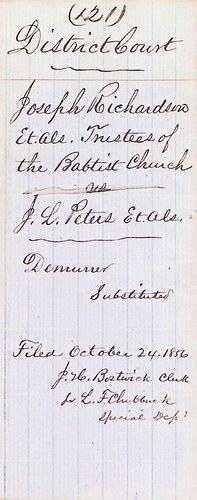 (121)
District Court
Joseph Richardson
Et als. Trustees of
the Babtist Church
vs
J. L. Peters Et als.
Demurrer
Substituted
Filed October 24. 1856
J. H. Bostwick Clerk
pr L. F. Chubbuck
Special Dep?